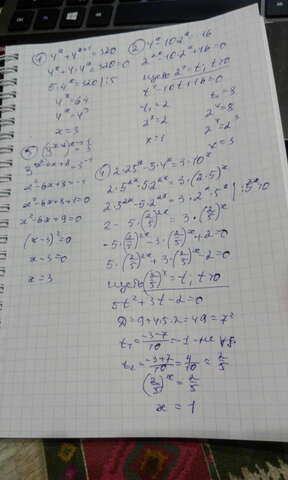 1) 4^x + 4^(x+1) = 320
4^x + 4·4^x = 320 = 0
5·4^x = 320 |:5
4^x = 64
4^x = 4^3
x = 3
2) 4^x - 10·2^x = -16
2^(2x) - 10·2^x + 16 = 0
2^x = t, t>0
t² - 10t + 16 = 0
t₁ = 2
2^x = 2
x = 1
t₂ = 8
2^x = 8
2^x = 2^3
x = 3
3^(x²-6x+8) = 3^(-1)
x² - 6x + 8 = -1
x² - 6x + 8 + 1 = 0
x² - 6x + 9 = 0
(x-3)² = 0
x - 3 = 0
x = 3
2·25^x - 5·4^x = 3·10^x
2·5^(2x) - 5·2^(2x) = 3·(2·5)^x
2·5^(2x) - 5·2^(2x) = 3·2^x·5^x |:5^(2x) ≠ 0
2 - 5·(2/5)^(2x) = 3·(2/5)^x
-5·(2/5)^(2x) - 3·(2/5)^x + 2 = 0
5·(2/5)^(2x) + 3·(2/5)^x - 2 = 0
(2/5)^x = t, t>0
5t² + 3t - 2 = 0
D = 9 + 4·5·2 = 49 = 7²
t₁ = (-3-7)/10 = -1 - не уд.
t₂ = (-3+7)/10 = 4/10 = 2/5
(2/5)^x = 2/5
x = 1